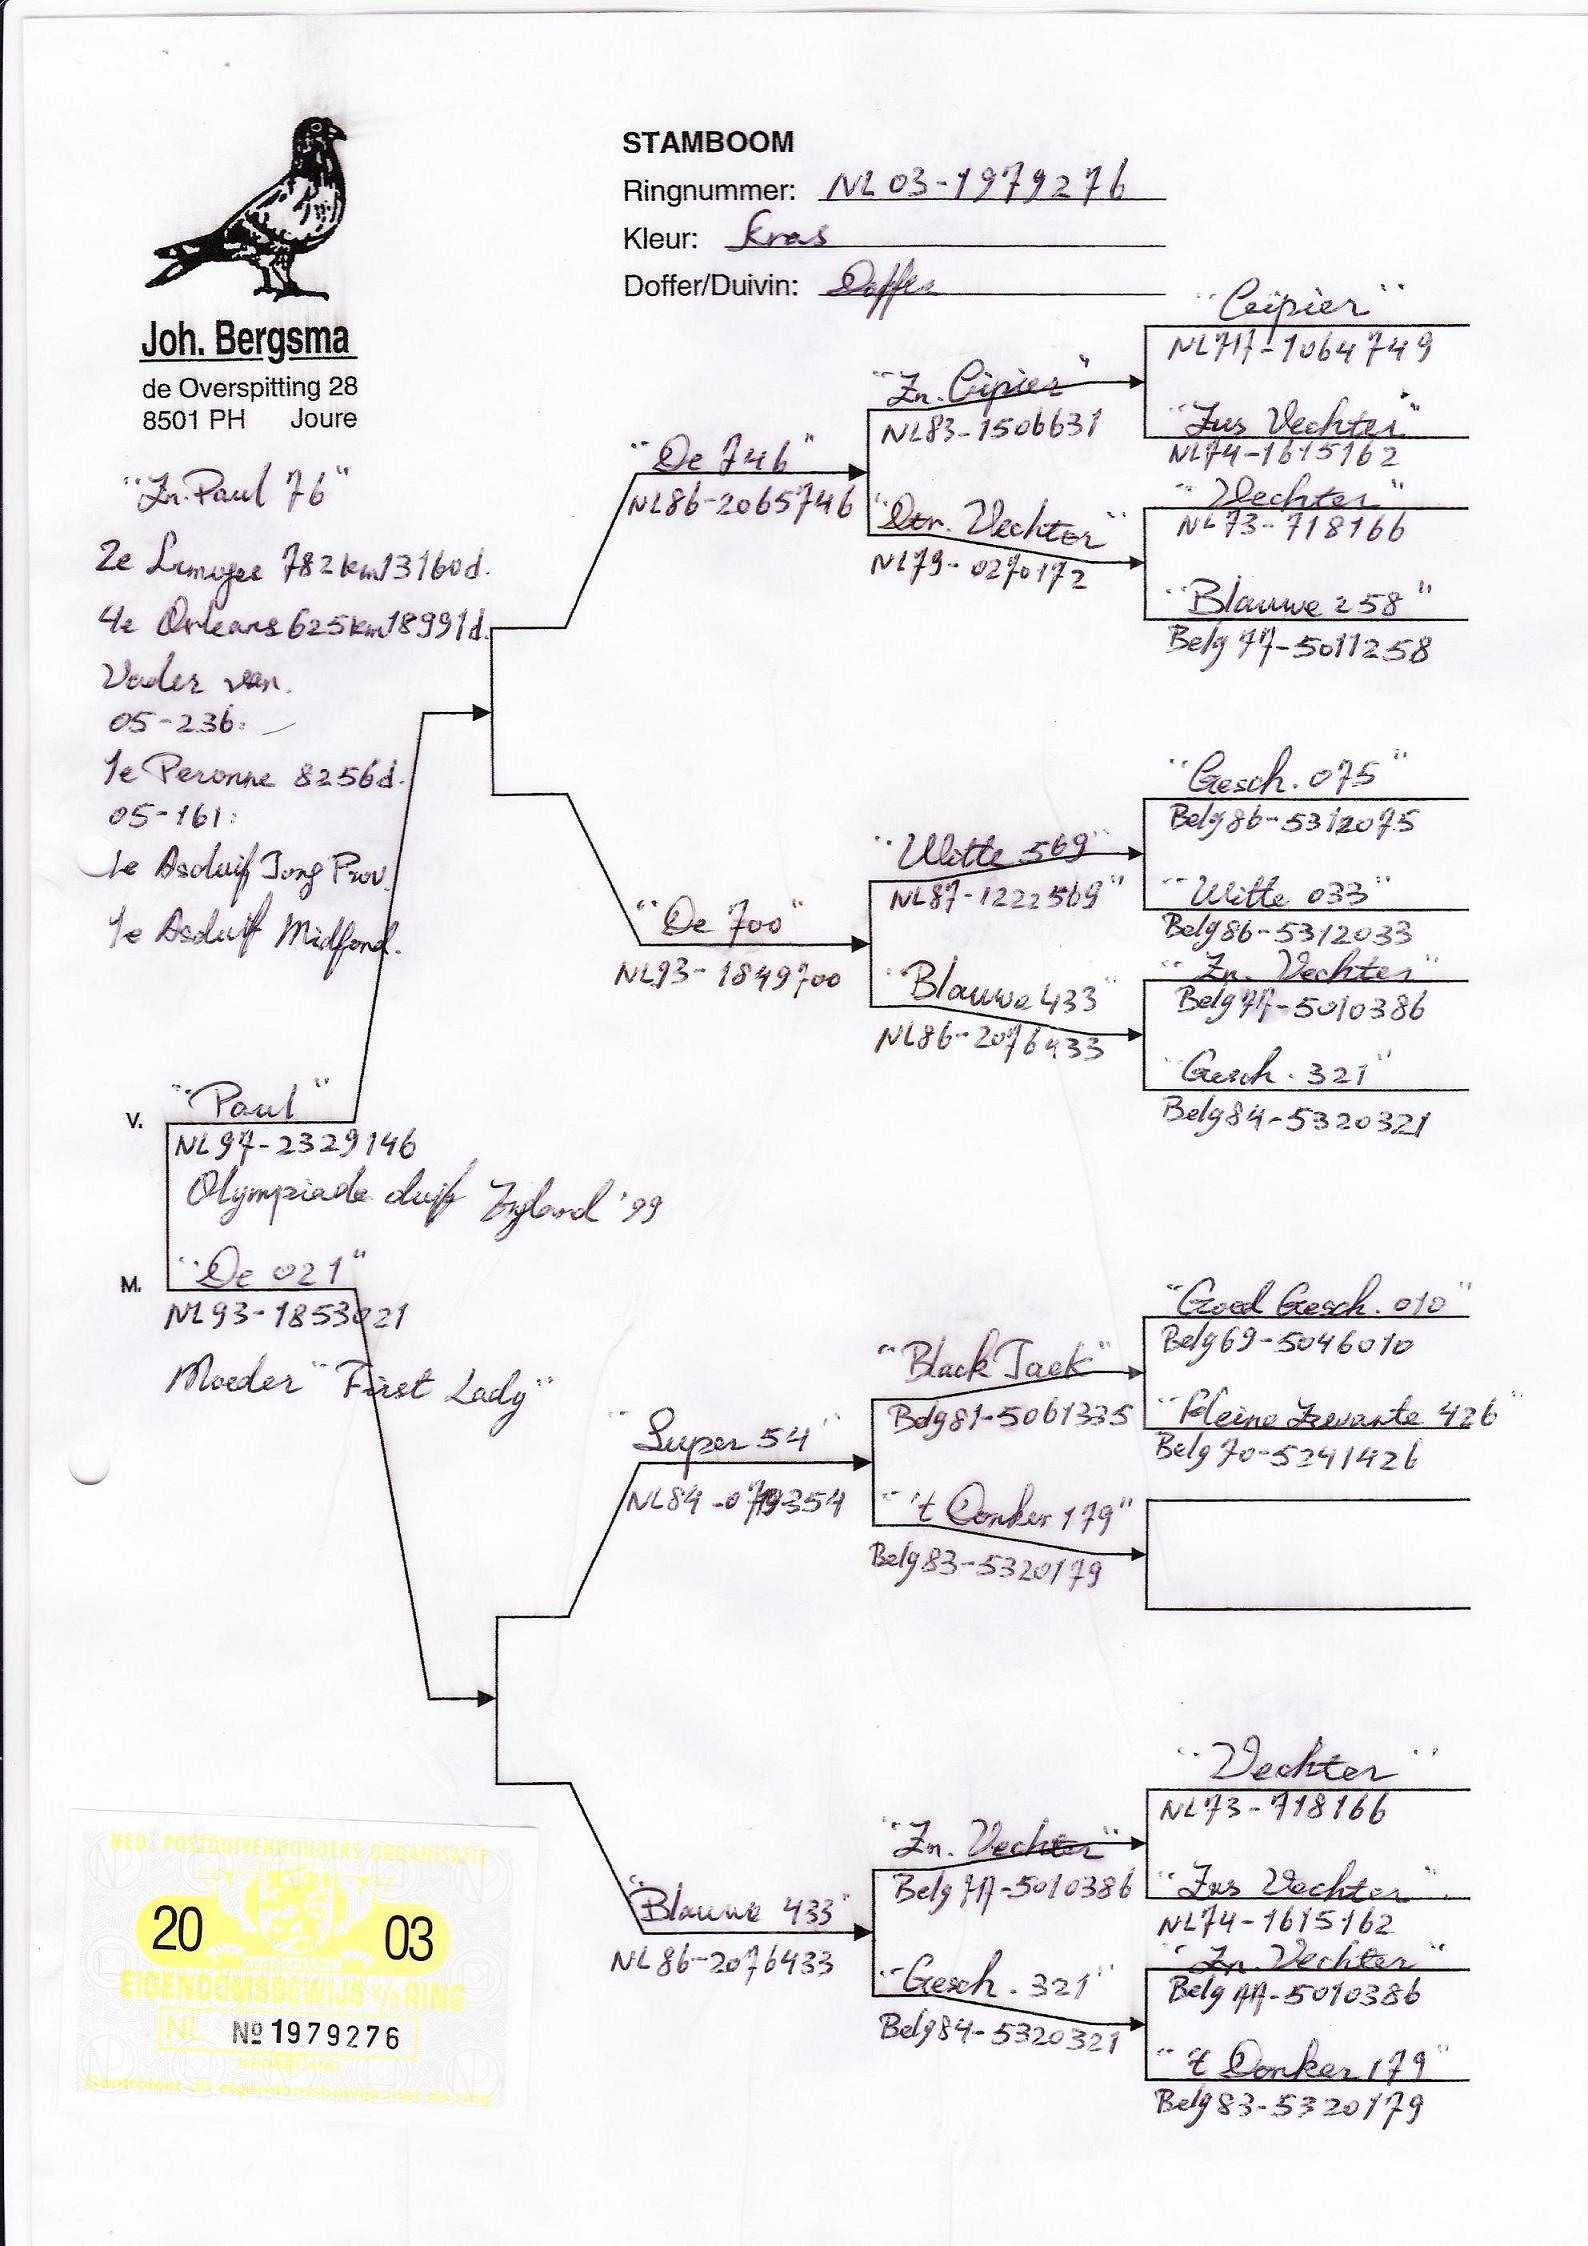 STAMBOOM
Ringnummer: NL 03-1979276
Kleur: Kras
Doffer/Duivin: Doffer
Joh. Bergsma
de Overspitting 28
8501 PH Joure
"Zn. Paul 76"
2e Limoges 782km 13160d.
4e Orleans 625km 18991d.
Vader van.
05-236:
1e Peronne 8256d.
05-161:
1e Asduif Jong Prov.
1e Asduif Midfond.
V. "Paul"
NL97-2329146
Olympiade duif '99
M. "De 021"
NL93-1853021
Moeder "First Lady"
"De 746"
NL86-2065746
"De 700"
NL93-1849700
"Super 54"
"Blauwe 433"
NL86-2076433
"Zn. Cipier"
NL83-1506631
"Dtr. Vechter"
NL79-0270172
"Witte 569"
NL87-1222569"
"Blauwe 433"
NL86-2076433
"Black Jack"
Belg81-5061335
"'t Donker 179"
Belg83-5320179
"Zn. Vechter"
Belg77-5010386
"Gesch. 321"
Belg84-5320321
"Cipier"
NL717-1064749
"Zus Vechter"
NL74-1615162
"Vechter"
NL73-718166
"Blauwe 258"
Belg77-5011258
"Gesch. 075"
Belg86-5312075
"Witte 033"
Belg86-5312033
"Zn. Vechter"
Belg77-5010386
"Gesch. 321"
Belg84-5320321
"Goed Gesch. 010"
Belg69-5046010
"Kleine Zwarte 426"
Belg70-5241426
"Vechter"
NL73-718166
"Zus Vechter"
NL74-1615162
"Zn. Vechter"
Belg77-5010386
"'t Donker 179"
Belg83-5320179
NED. POSTDUIVENHOUDERS ORGANISATIE
20 03
EIGENDOMSBEWIJS v/d RING
NL № 1979276
NEDERLAND
Controleer dit eigendomsbewijs met de ring